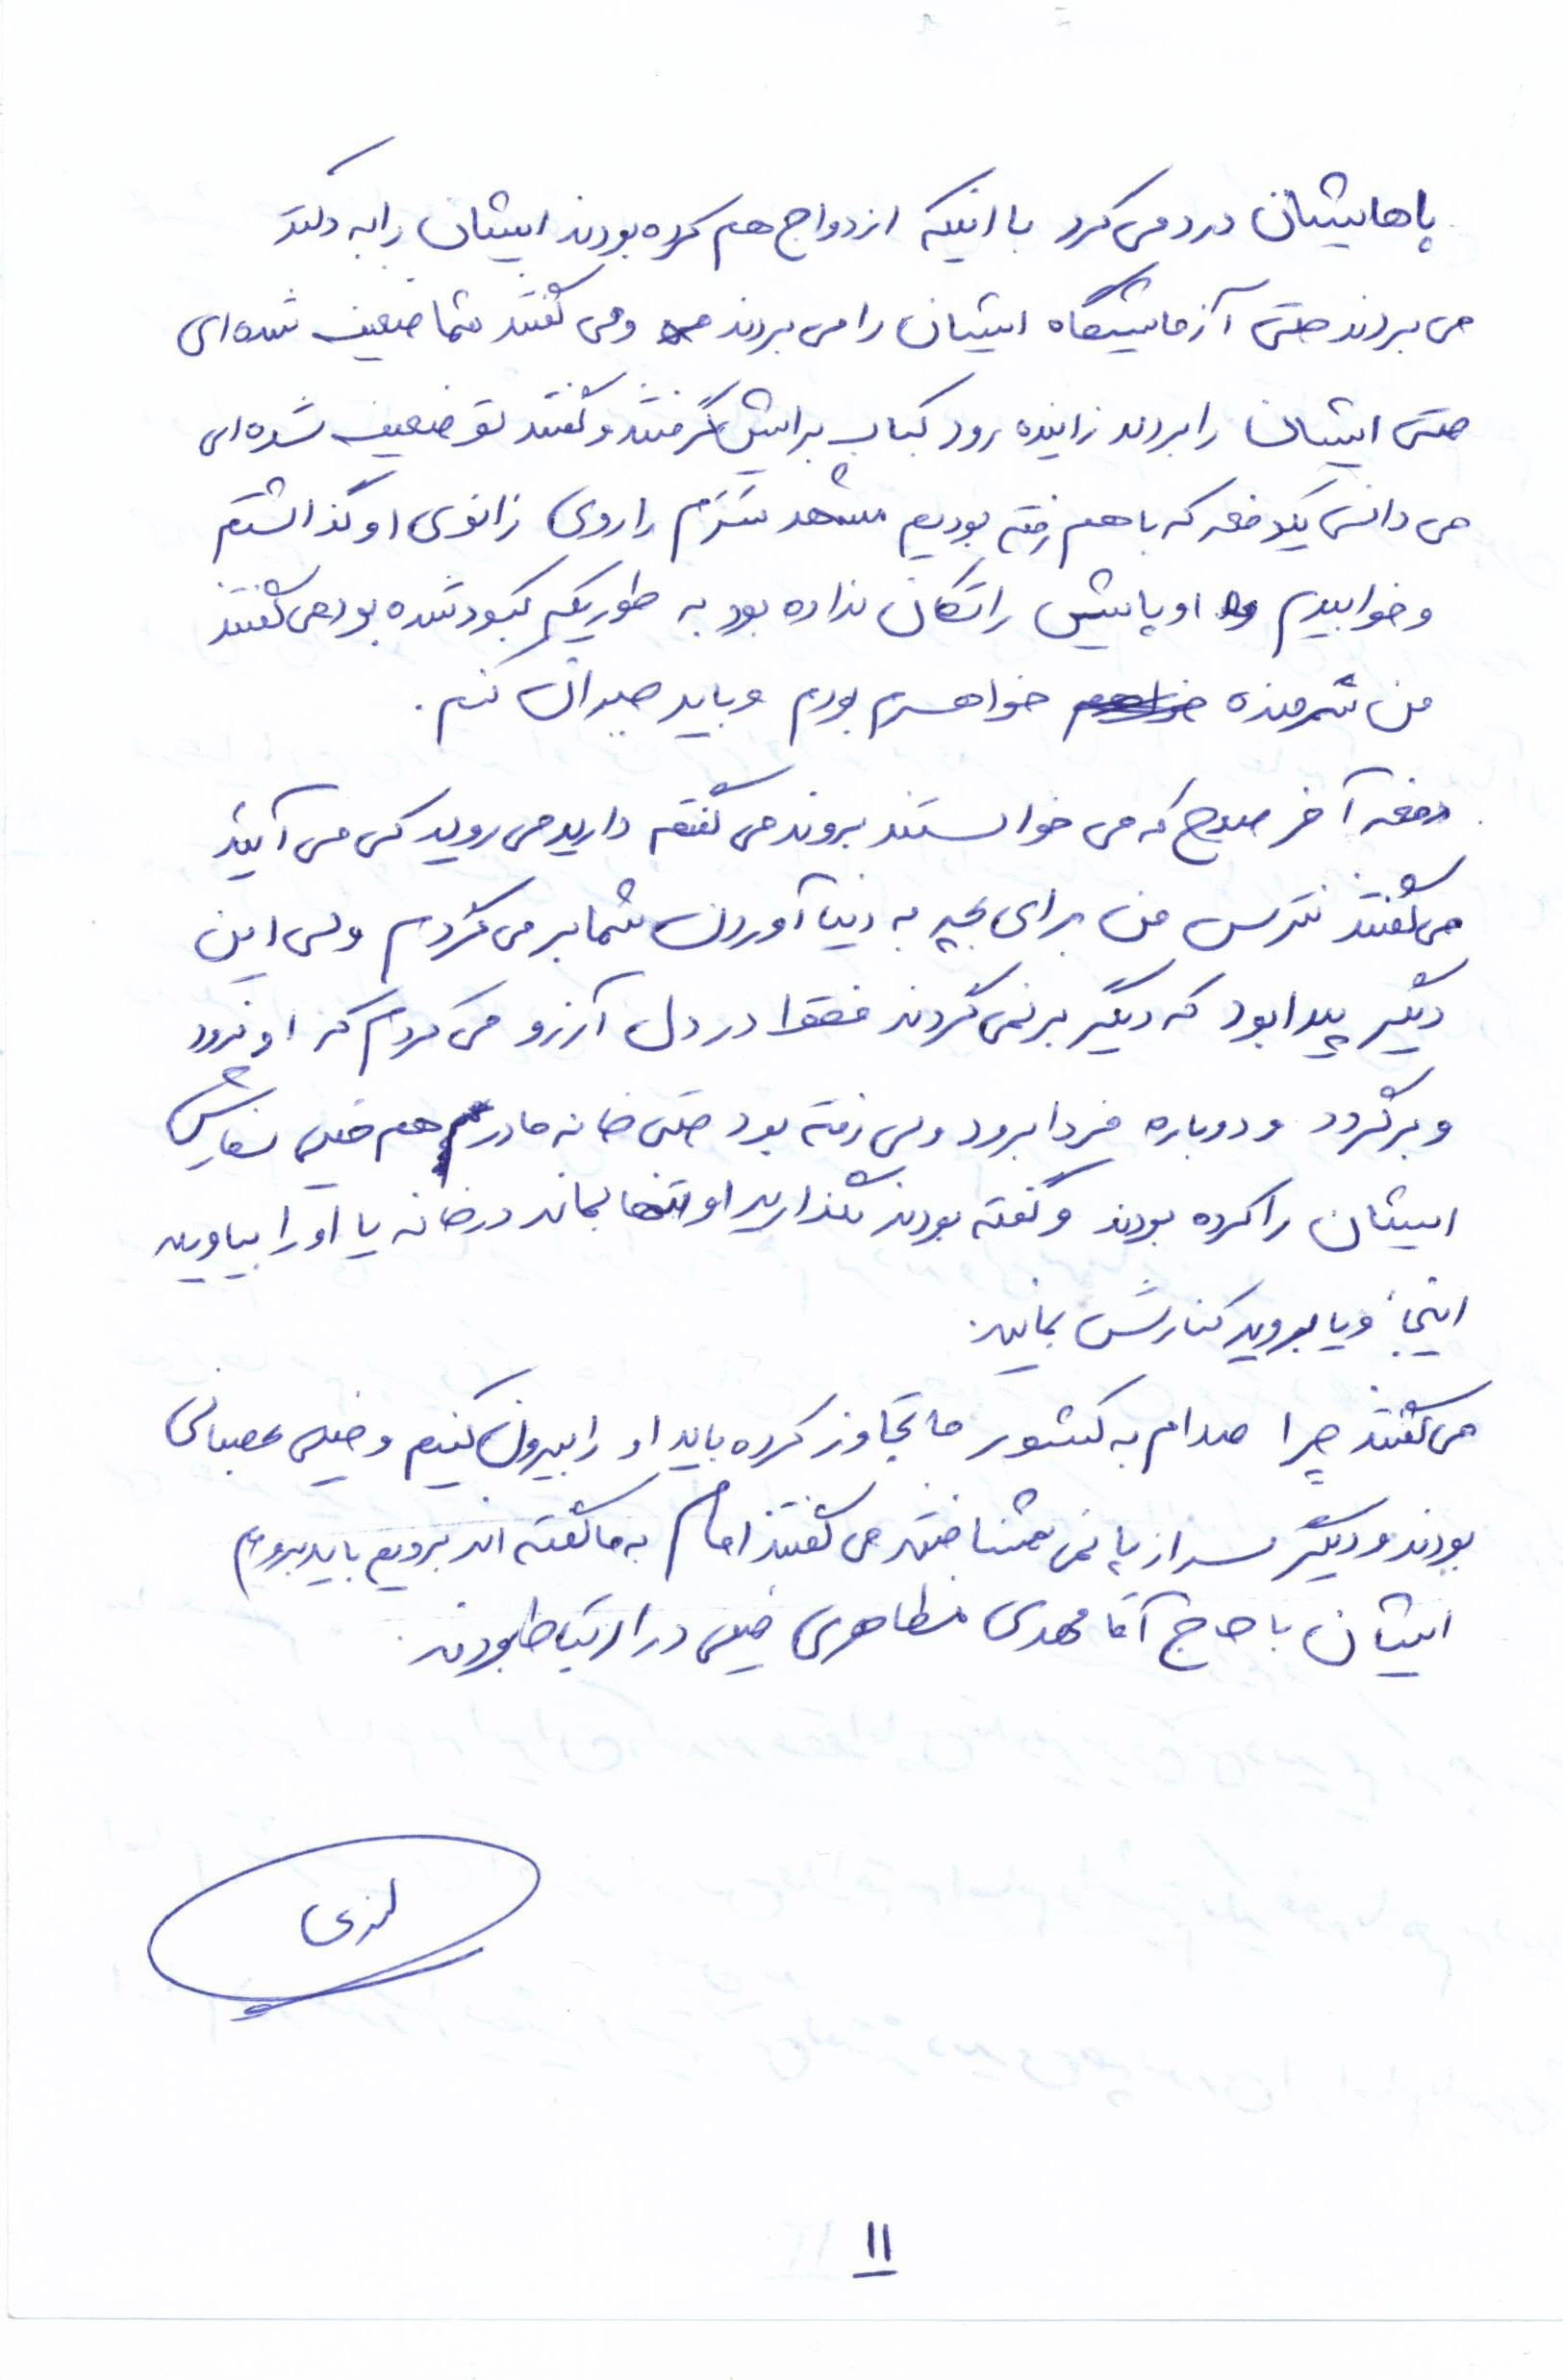 پاهایشان درد می کرد با اینکه ازدواج هم کرده بودند ایشان را به دکتر
می بردند حتی آزمایشگاه ایشان را می بردند و می گفتند شما ضعیف شده ای
حتی ایشان را بردند زاینده رود کباب برایش گرفتند و گفتند تو ضعیف شده ای
می دانی یکدفعه که با هم رفته بودیم مشهد سَرَم را روی زانوی او گذاشتم
و خوابیدم او پایش را تکان نداده بود به طوریکه کبود شده بود می گفتند
من شرمنده خواهرم بودم و باید جبران کنم.
دفعه آخر صبح که می خواستند بروند می گفتم دارید می روید کی می آیید
می گفتند نترس من برای بچه به دنیا آوردن شما بر می گردم ولی این
دیگر پیدا بود که دیگر بر نمی گردند فقط در دل آرزو می کردم که او نرود
و برگردد و دوباره فردا برود ولی رفته بود حتی خانه مادرم هم خیلی سفارش
ایشان را کرده بودند و گفته بودند نگذارید او تنها بماند در خانه یا او را بیاورید
اینجا و یا بروید کنارش بمانید.
می گفتند چرا صدام به کشور ما تجاوز کرده باید او را بیرون کنیم و خیلی عصبانی
بودند و دیگر سر از پا نمی شناختند می گفتند امام به ما گفته اند برویم باید برویم
ایشان با حاج آقا مهدی مظاهری خیلی در ارتباط بودند.
۱۱